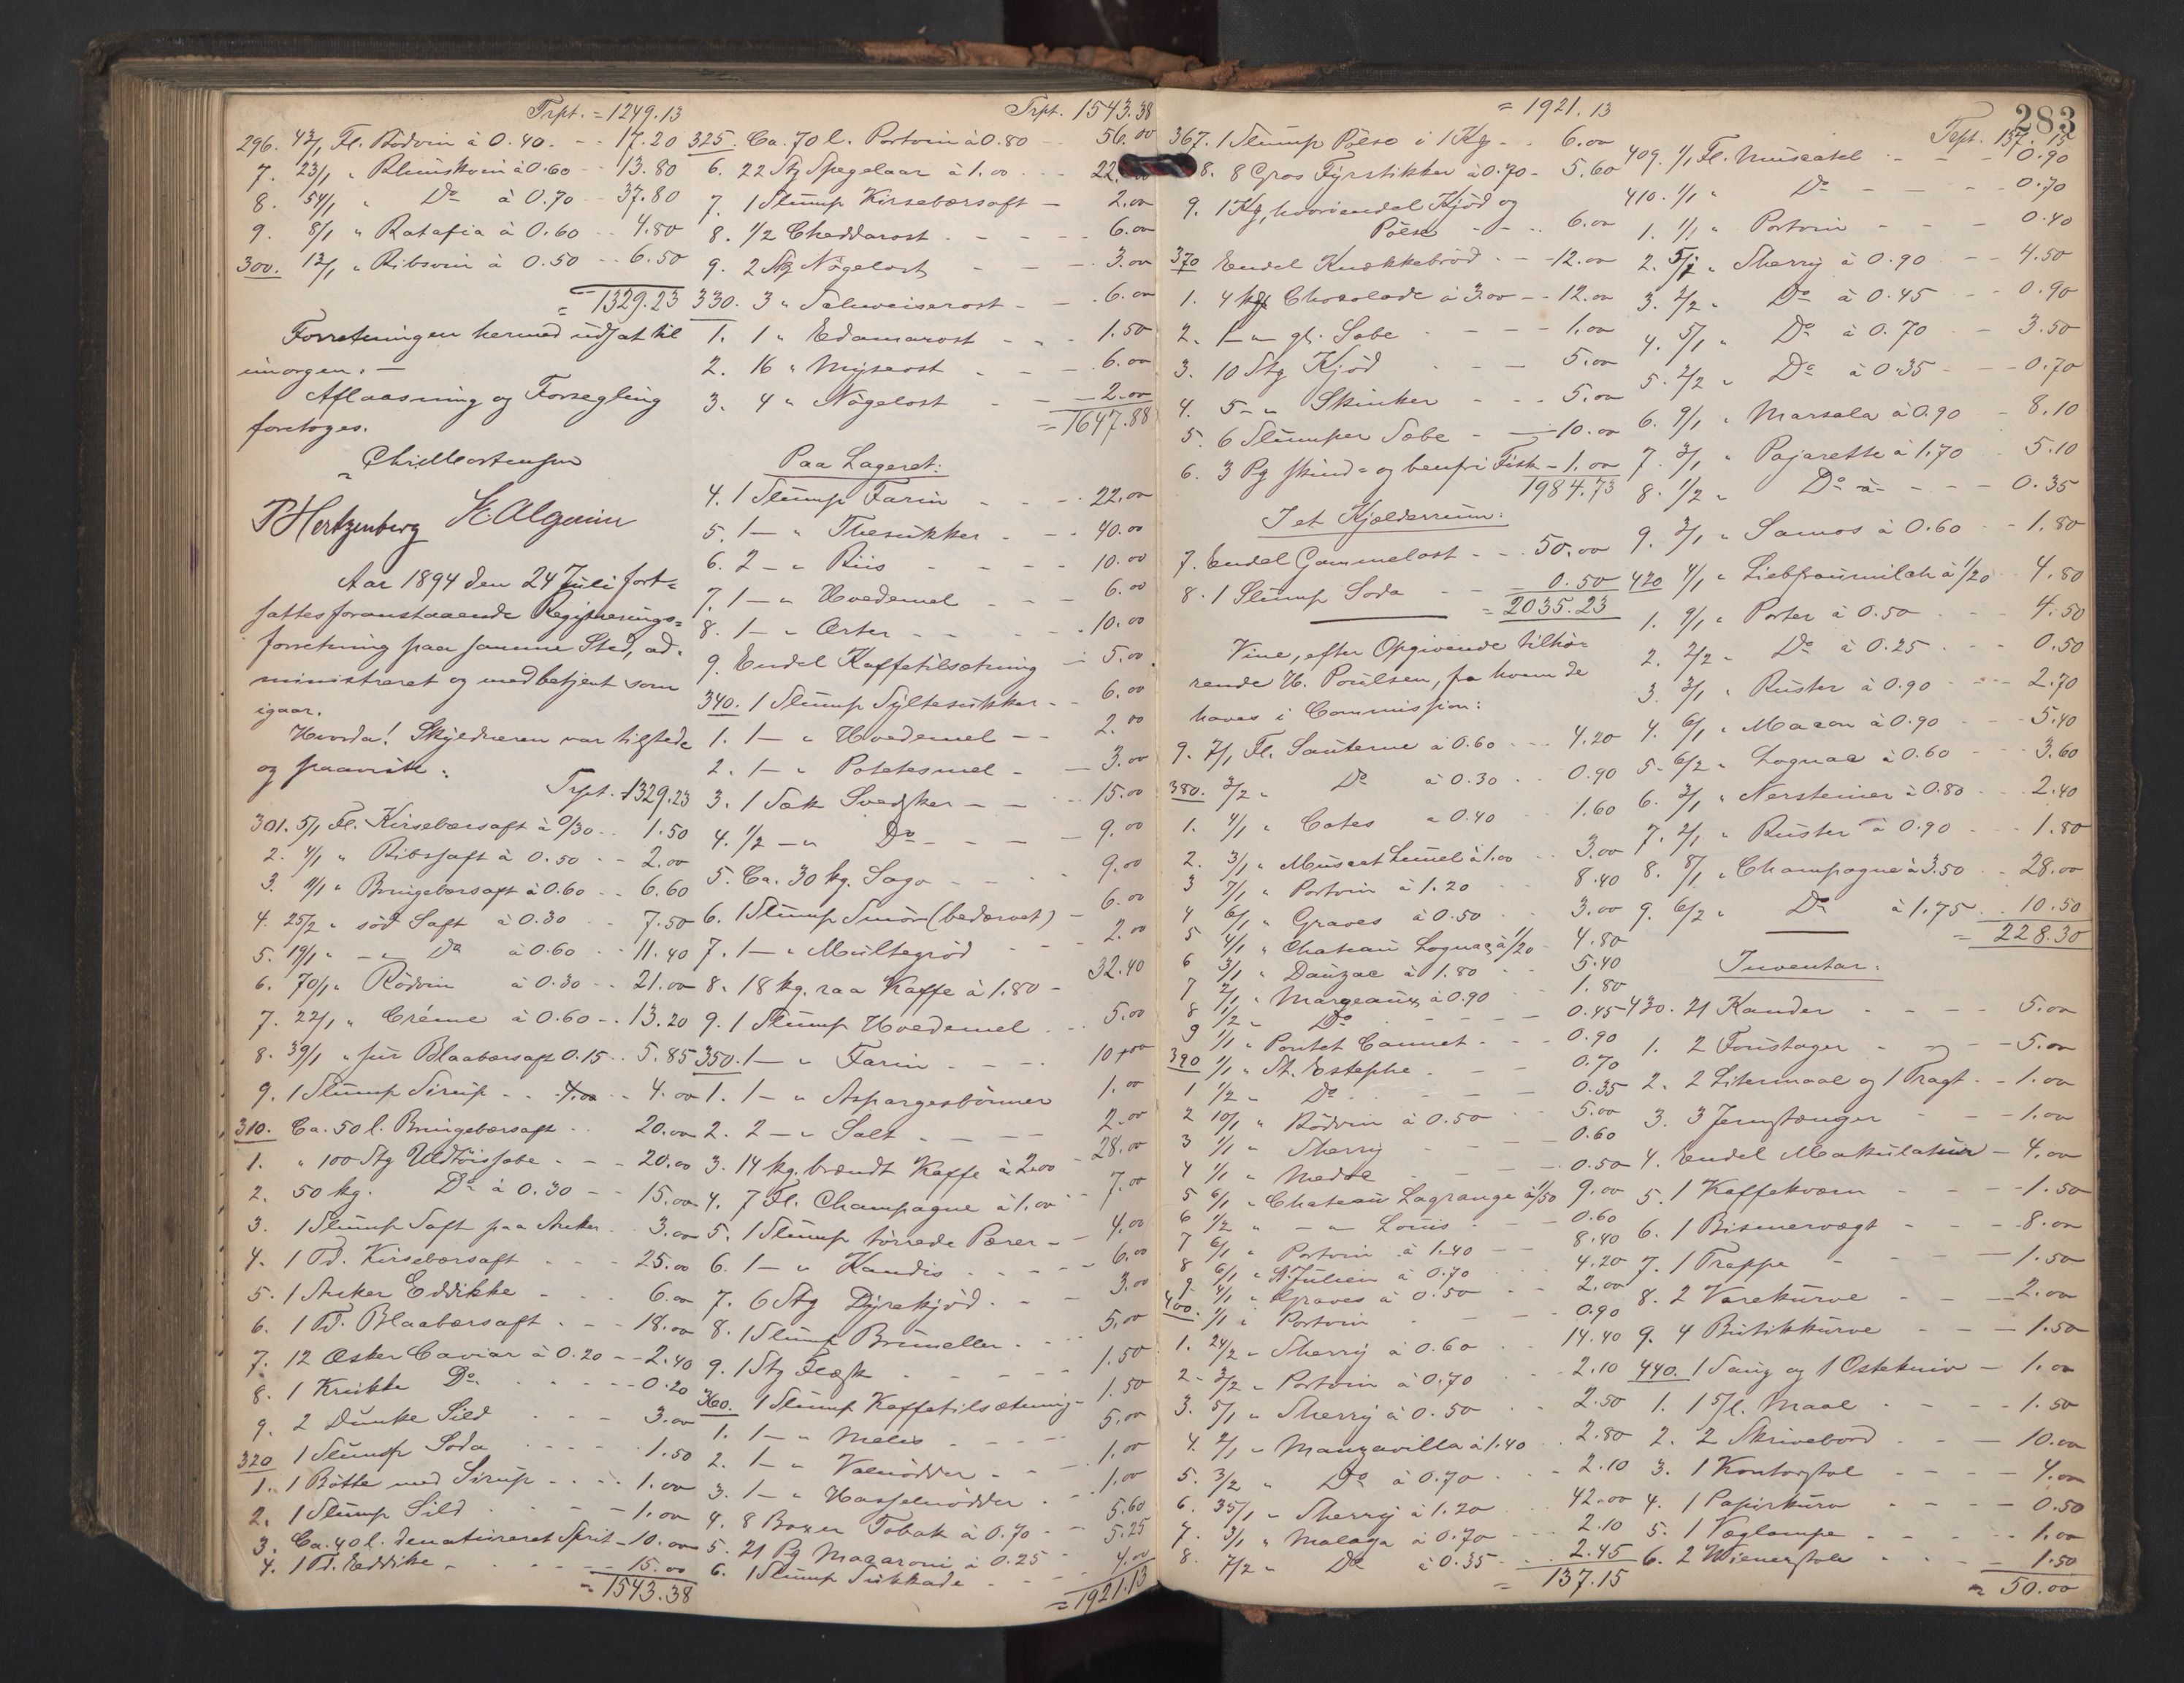 Trpt. = 1249.13
296. 43/1 Fl. Rödvin à 0.40. - - 17.20
7. 23/1 " Rhinskvin à 0.60 - - 13.80
8. 54/1 " Do à 0.70 - - 37.80
9. 8/1 " Ratafia à 0.60 - - 4.80
300. 13/1 " Ribsvin à 0.50 - - 6.50
= 1329.23
Forretningen hermed udsat til
imorgen. —
Aflaasning og Forsegling
foretoges.
Chr. Mortensen
P Hertzenberg K. Algaim
Aar 1894 den 24 Juli fort=
sattes foranstaaende Registrerings=
forretning paa samme Sted, ad=
ministreret og medbetjent som
igaar.
Hvorda! Skyldneren var tilstede
og paaviste:
Trpt. 1329.23
301. 5/1 Fl. Kirsebærsaft à 0/30 - - 1.50
2. 4/1 " Ribssaft à 0.50 - - 2.00
3. 11/1 " Bringebærsaft à 0.60 - - 6.60
4. 25/2 " söd Saft à 0.30 - - 7.50
5. 19/1 " - " Do à 0.60 - - 11.40
6. 70/1 " Rödvin à 0.30 - - 21.00
7. 22/1 " Créme à 0.60 - - 13.20
8. 39/1 " sur Blaabærsaft 0.15 - - 5.85
9. 1 Slump Sirup - - 4.00 - - 4.00
310. Ca. 50 l. Bringebærsaft - - 20.00
1. " 100 Stg Uldtöissæbe - - - 20.00
2. 50 kg. Do à 0.30 - - 15.00
3. 1 Slump Saft paa Anker - - 3.00
4. 1 Td. Kirsebærsaft - - - 25.00
5. 1 Anker Eddikke - - - 6.00
6. 1 Td. Blaabærsaft - - - 18.00
7. 12 Æsker Caviar à 0.20 - - 2.40
8. 1 Krukke Do. - - - - - 0.20
9. 2 Dunke Sild - - - 3.00
320 1 Slump Soda - - - - 1.50
1. 1 Bötte med Sirup - - - - 1.00
2. 1 Slump Sild - - - - 1.00
3. Ca. 40 l. denatureret Sprit - 10.00
4. 1 Td. Eddike - - - - - 15.00
= 1543.38
Trpt. 1543.38
325. Ca. 70 l. Portvin à 0.80 - - 56.00
6. 22 Stg Spegelaar à 1.00 - - - 22
7. 1 Slump Kirsebærsaft - 2.00
8. 1/2 Cheddarost - - - - 6.00
9. 2 Stg Nögelost - - - 3.00
330. 3 " Schweiserost - - - 6.00
1. 1 " Edamarost - - - 1.50
2. 16 " Myseost - - - 6.00
3. 4 " Nögelost - - 2.00
= 1647.88
Paa Lageret:
4. 1 Slump Farin - - - 22.00
5. 1 - " Thesukker - - - 40.00
6. 2 - " Riis - - - - 10.00
7. 1 - " Hvedemel - - - 6.00
8. 1 - " Ærter - - - - - 10.00
9. Endel Kaffetilsætning - 5.00
340. 1 Slump Syltesukker - - 6.00
1. 1 - " Hvedemel - - 2.00
2. 1 - " Potetesmel - - 3.00
3. 1 Sæk Svedsker - - - 15.00
4. 1/2 - " Do - - - 9.00
5. Ca. 30 kg. Sago - - - 9.00
6. 1 Slump Smör (bedærvet) - 6.00
7. 1 - " Multegröd - - - 2.00
8. 18 kg. raa Kaffe à 1.80 - 32.40
9. 1 Slump Hvedemel - - - 5.00
350. 1 - " Farin - - - - 10.00
1. 1 - " Aspargesbönner 1.00
2. 2 - " Salt - - - - 2.00
3. 14 kg. brændt Kaffe à 2.00 - 28.00
4. 7 Fl. Champagne à 1.00 - - 7.00
5. 1 Slump törrede Pærer - - 4.00
6. 1 - " Kandis - - - - 6.00
7. 6 Stg Dyrekjöd - - - 3.00
8. 1 Slump Brüneller - - - 5.00
9. 1 Stg Flæsk - - - - - 1.50
360. 1 Slump Kaffetilsætning - 1.50
1. 1 - " Melis - - - - 5.00
2. 1 - " Valnödder - - - 1.00
3. 1 - " Hasselnödder - - 1.00
4. 8 Boxer Tobak à 0.70 - - 5.60
5. 21 Pg Macaroni à 0.25 - 5.25
6. 1 Slump Sukkade - - - 4.00
= 1921.13
283
= 1921.13
367. 1 Slump Pölse i 1 Kg - - 6.00
8. 8 Gros Fyrstikker à 0.70 - 5.60
9. 1 Kg, hvori endel Kjöd og
Pölse - - - 6.00
370 Endel Knækkebröd - - - 12.00
1. 4 kg Chocolade à 3.00 - - 12.00
2. 1 - " gl. Sæbe - - - - 1.00
3. 10 Stg Kjöd - - - 5.00
4. 5 - " Skinker - - - 5.00
5. 6 Slumper Sæbe - - 10.00
6. 3 Pg skind- og benfri Fisk - 1.00
1984.73
I et Kjælderrum:
7. Endel Gammelost - - - 50.00
8. 1 Slump Soda - - 0.50
= 2035.23
Vine, efter Opgivende tilhö=
rende H. Poulsen, fra hvem de
haves i Commission:
9. 7/1 Fl. Sauterne à 0.60 - - - 4.20
380. 3/2 " Do à 0.30 - - 0.90
1. 4/1 " Cotes à 0.40 1.60
2. 3/1 " Muscat Lunel à 1.00 - - 3.00
3 7/1 " Portvin à 1.20 8.40
4 6/1 " Graves à 0.50 - - 3.00
5 4/1 " Chateau Lognac à 1/20 - 4.80
6 3/1 " Dauzac à 1.80 - - 5.40
7 2/1 " Margeaux à 0.90 1.80
8 1/2 " Do - - - - - 0.45
9 1/1 " Pontet Cannet - - - 0.90
390 1/1 " St. Estephe - - - 0.70
1 1/2 " Do - - - - 0.35
2 10/1 " Rödvin à 0.50 - - 5.00
3 1/1 " Sherry - - - 0.60
4 1/1 " Medoc - - - - 0.50
5 6/1 " Chateau Lagrange à 1/50 9.00
6 1/2 " - " Louis - - - 0.60
7 6/1 " Portvin à 1.40 - - 8.40
8 6/1 " St. Julien à 0.70 - - 4.20
9 4/1 " Graves à 0.50 - - 2.00
400. 1/1 " Portvin - - - 0.90
1. 24/2 " Sherry à 0.60 - - 14.40
2. 3/2 " Portvin à 0.70 - - - 2.10
3. 5/1 " Sherry à 0.50 - - 2.50
4. 2/1 " Manzavilla à 1.40 - - 2.80
5. 3/2 " Do à 0.70 - - - 2.10
6. 35/1 " Sherry à 1.20 - - 42.00
7. 3/1 " Malaga à 0.70 - - - 2.10
8. 7/2 " Do à 0.35 - - - 2.45
= 137.15
Trpt. 137.15
409. 1/1 Fl. Muscatel - - - 0.90
410. 1/1 " Do - - - - 0.70
1. 1/1 " Portvin - - - 0.40
2. 5/1 " Sherry à 0.90 - - 4.50
3. 2/2 " Do à 0.45 - - 0.90
4. 5/1 " Do à 0.70 - - 3.50
5. 2/2 " Do à 0.35 - - - 0.70
6. 9/1 " Marsala à 0.90 - 8.10
7. 3/1 " Pajarette à 1.70 - 5.10
8. 1/2 " Do à - - - 0.35
9. 3/1 " Samos à 0.60 - - 1.80
420 4/1 " Liebfraumilch à 1/20 - 4.80
1. 9/1 " Porter à 0.50 - - - 4.50
2. 2/2 " Do à 0.25 - - - 0.50
3. 3/1 " Ruster à 0.90 - - - 2.70
4. 6/1 " Macon à 0.90 - - - 5.40
5. 6/2 " Lognac à 0.60 - - - 3.60
6. 3/1 " Nersteiner à 0.80 - - - 2.40
7. 2/1 " Ruster à 0.90 - - - 1.80
8. 8/1 " Champagne à 3.50 - - 28.00
9. 6/2 " Do à 1.75 - - 10.50
= 228.30
Inventar:
430. 21 Kander - - - - 5.00
1. 2 Foustager - - - - 5.00
2. 2 Litermaal og 1 Tragt - - 1.00
3. 3 Jernstænger - - - 1.00
4. Endel Makulatur - 4.00
5. 1 Kaffekværn - - - - 1.50
6. 1 Bismervægt - - - - 8.00
7. 1 Trappe - - - - 1.50
8. 2 Varekurve - - - 2.00
9. 4 Butikkurve - - - 1.50
440. 1 Saug og 1 Ostekniv - 1.00
1. 1 5/l. Maal - - - - 1.50
2. 2 Skrivebord - - - 10.00
3. 1 Kontorstol - - - - 4.00
4. 1 Papirkurv - - - - 0.50
5. 1 Væglampe - - - - - 1.00
6. 2 Wienerstole - - - - 1.50
= 50.00